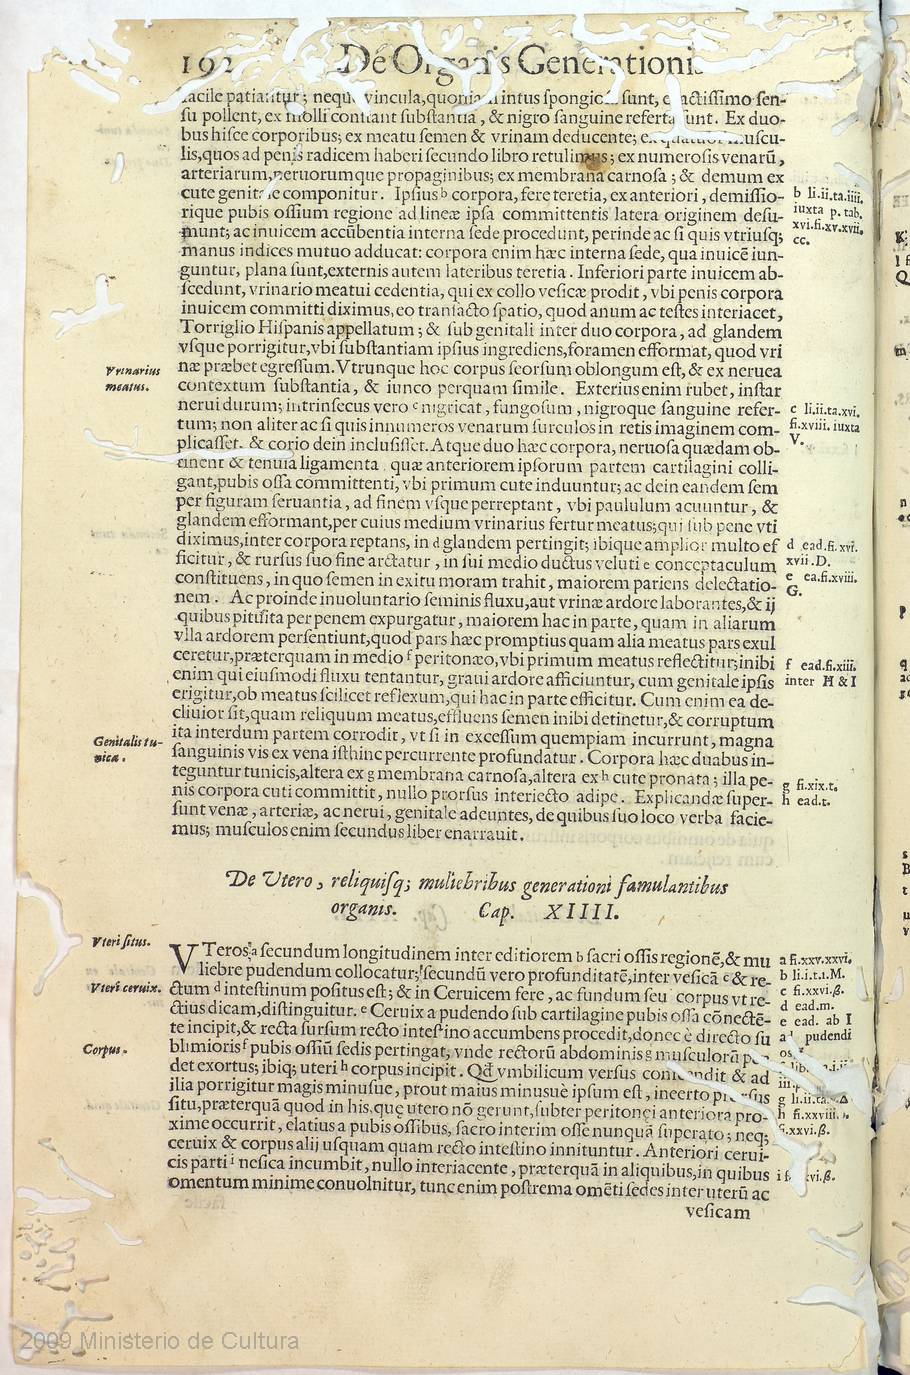 192 De Organis Generationis
facile patiantur; neque vincula, quoniam intus spongiosi sunt, exactissimo sen-
su pollent, ex molli constant substantia, & nigro sanguine referta sunt. Ex duo-
bus hisce corporibus; ex meatu semen & vrinam deducente; ex quatuor muscu-
lis, quos ad penis radicem haberi secundo libro retulimus; ex numerosis venarũ,
arteriarum, neruorumque propaginibus; ex membrana carnosa; & demum ex
cute genitale componitur. Ipsius b corpora, fere teretia, ex anteriori, demissio-
b li.ii.ta.iiii.
rique pubis ossium regione ad lineæ ipsa committentis latera originem desu-
iuxta p. tab.
munt; ac inuicem accũbentia interna sede procedunt, perinde ac si quis vtriusq;
xvi.fi.xv.xvii.
cc.
manus indices mutuo adducat: corpora enim hæc interna sede, qua inuicẽ iun-
guntur, plana sunt, externis autem lateribus teretia. Inferiori parte inuicem ab-
scedunt, vrinario meatui cedentia, qui ex collo vesicæ prodit, vbi penis corpora
inuicem committi diximus, eo transacto spatio, quod anum ac testes interiacet,
Torriglio Hispanis appellatum; & sub genitali inter duo corpora, ad glandem
vsque porrigitur, vbi substantiam ipsius ingrediens, foramen efformat, quod vri
Vrinarius
næ præbet egressum. Vtrunque hoc corpus seorsum oblongum est, & ex neruea
meatus.
contextum substantia, & iunco perquam simile. Exterius enim rubet, instar
nerui durum; intrinsecus vero c nigricat, fungosum, nigroque sanguine refer-
c li.ii.ta.xvi.
tum; non aliter ac si quis innumeros venarum surculos in retis imaginem com-
fi.xviii. iuxta
V.
plicasset, & corio dein inclusisset. Atque duo hæc corpora, neruosa quædam ob-
tinent & tenuia ligamenta quæ anteriorem ipsorum partem cartilagini colli-
gant, pubis ossa committenti, vbi primum cute induuntur; ac dein eandem sem
per figuram seruantia, ad finem vsque perreptant, vbi paululum acuuntur, &
glandem efformant, per cuius medium vrinarius fertur meatus; qui sub pene vti
diximus, inter corpora reptans, in d glandem pertingit; ibique amplior multo ef
d ead.fi.xvi.
ficitur, & rursus suo fine arctatur, in sui medio ductus veluti e conceptaculum
xvii.D.
constituens, in quo semen in exitu moram trahit, maiorem pariens delectatio-
e ea.fi.xviii.
G.
nem. Ac proinde inuoluntario seminis fluxu, aut vrinæ ardore laborantes, & ij
quibus pituita per penem expurgatur, maiorem hac in parte, quam in aliarum
vlla ardorem persentiunt, quod pars hæc promptius quam alia meatus pars exul
ceretur, præterquam in medio f peritonæo, vbi primum meatus reflectitur; inibi
f ead.fi.xiii.
enim qui eiusmodi fluxu tentantur, graui ardore afficiuntur, cum genitale ipsis
inter H & I
erigitur, ob meatus scilicet reflexum, qui hac in parte efficitur. Cum enim ea de-
cliuior sit, quam reliquum meatus, effluens semen inibi detinetur, & corruptum
Genitalis tu-
ita interdum partem corrodit, vt si in excessum quempiam incurrunt, magna
nica.
sanguinis vis ex vena isthinc percurrente profundatur. Corpora hæc duabus in-
teguntur tunicis, altera ex g membrana carnosa, altera ex h cute pronata; illa pe-
g fi.xix.t.
nis corpora cuti committit, nullo prorsus interiecto adipe. Explicandæ super-
h ead.t.
sunt venæ, arteriæ, ac nerui, genitale adeuntes, de quibus suo loco verba facie-
mus; musculos enim secundus liber enarrauit.
De Vtero, reliquisq; muliebribus generationi famulantibus
organis. Cap. XIIII.
Vteri situs.
VTeros a secundum longitudinem inter editiorem b sacri ossis regionẽ, & mu
a fi.xxv.xxvi.
liebre pudendum collocatur; secundũ vero profunditatẽ, inter vesicã c & re-
b li.i.t.1.M.
Vteri ceruix.
ctum d intestinum positus est; & in Ceruicem fere, ac fundum seu corpus vt re-
c fi.xxvi.ß.
d ead.m.
ctius dicam, distinguitur. e Ceruix a pudendo sub cartilagine pubis ossa cõnectẽ-
e ead. ab I
te incipit, & recta sursum recto intestino accumbens procedit, donec è directo su
pudendi
Corpus.
blimioris f pubis ossiũ sedis pertingat, vnde rectorũ abdominis g musculorũ
det exortus; ibiq; uteri h corpus incipit. Qđ vmbilicum versus & ad
ilia porrigitur magis minusue, prout maius minusuè ipsum est, incerto prorsus
situ, præterquã quod in his, que utero nõ gerunt, subter peritonei anteriora pro-
h fi.xxviii.
xime occurrit, elatius a pubis ossibus, sacro interim osse nunquã superato; neq;
fi.xxvi.ß.
ceruix & corpus alij usquam quam recto intestino innituntur. Anteriori cerui-
cis parti i uesica incumbit, nullo interiacente, præterquã in aliquibus, in quibus
omentum minime conuolnitur, tunc enim postrema omẽti sedes inter uterũ ac
vesicam
2009 Ministerio de Cultura